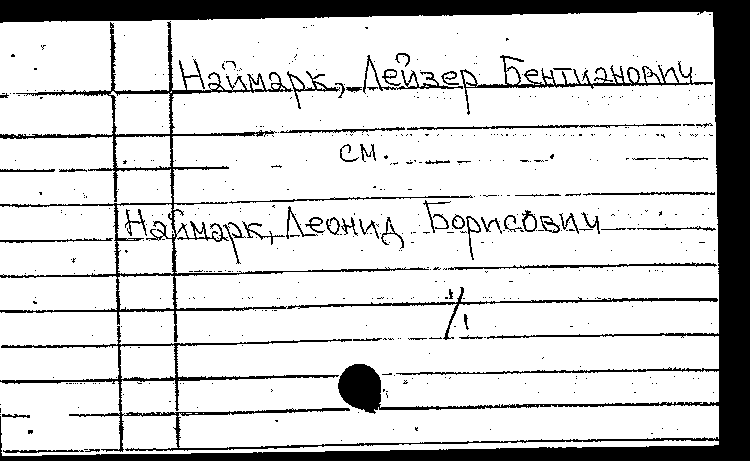 Наймарк, Лейзер Бентианович
см.
Наймарк, Леонид Борисович